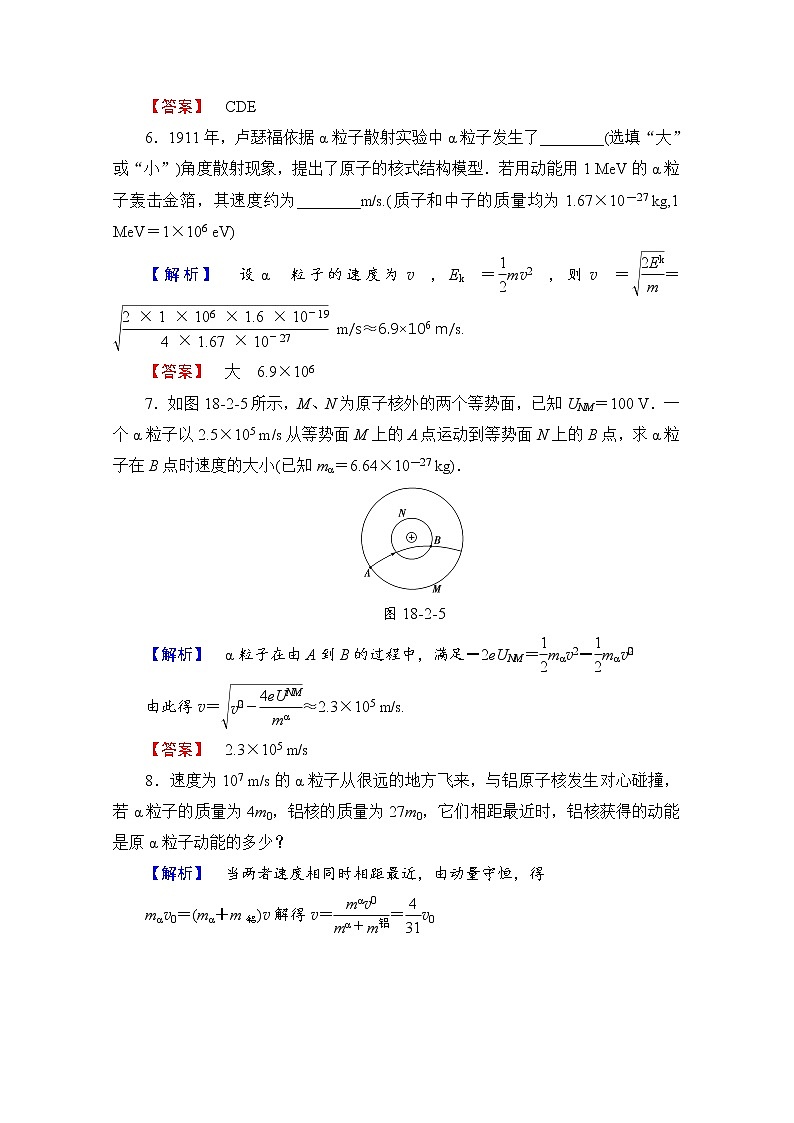 【答案】 CDE
6．1911年，卢瑟福依据α粒子散射实验中α粒子发生了________(选填“大”
或“小”)角度散射现象，提出了原子的核式结构模型．若用动能用 1 MeV 的α粒
子轰击金箔，其速度约为________m/s.(质子和中子的质量均为 1.67×10－27 kg,1
MeV＝1×106 eV)
【解析】 设α 粒子的速度为 v ，Ek ＝1/2mv2 ，则 v ＝√(2Ek/m)＝
√(2 × 1 × 106 × 1.6 × 10－19/4 × 1.67 × 10－27) m/s≈6.9×106 m/s.
【答案】 大 6.9×106
7．如图 18-2-5 所示，M、N 为原子核外的两个等势面，已知 UNM＝100 V．一
个α粒子以 2.5×105 m/s 从等势面 M 上的 A 点运动到等势面 N 上的 B 点，求α粒
子在 B 点时速度的大小(已知 mα＝6.64×10－27 kg)．
N
B
A
M
图 18-2-5
【解析】 α粒子在由 A 到 B 的过程中，满足－2eUNM＝1/2mαv2－1/2mαv0
由此得 v＝√(v0－4eUNM/mα)≈2.3×105 m/s.
【答案】 2.3×105 m/s
8．速度为 107 m/s 的α粒子从很远的地方飞来，与铝原子核发生对心碰撞，
若α粒子的质量为 4m0，铝核的质量为 27m0，它们相距最近时，铝核获得的动能
是原α粒子动能的多少？
【解析】 当两者速度相同时相距最近，由动量守恒，得
mαv0＝(mα＋m 铝)v 解得 v＝mαv0/(mα＋m铝)＝4/31v0